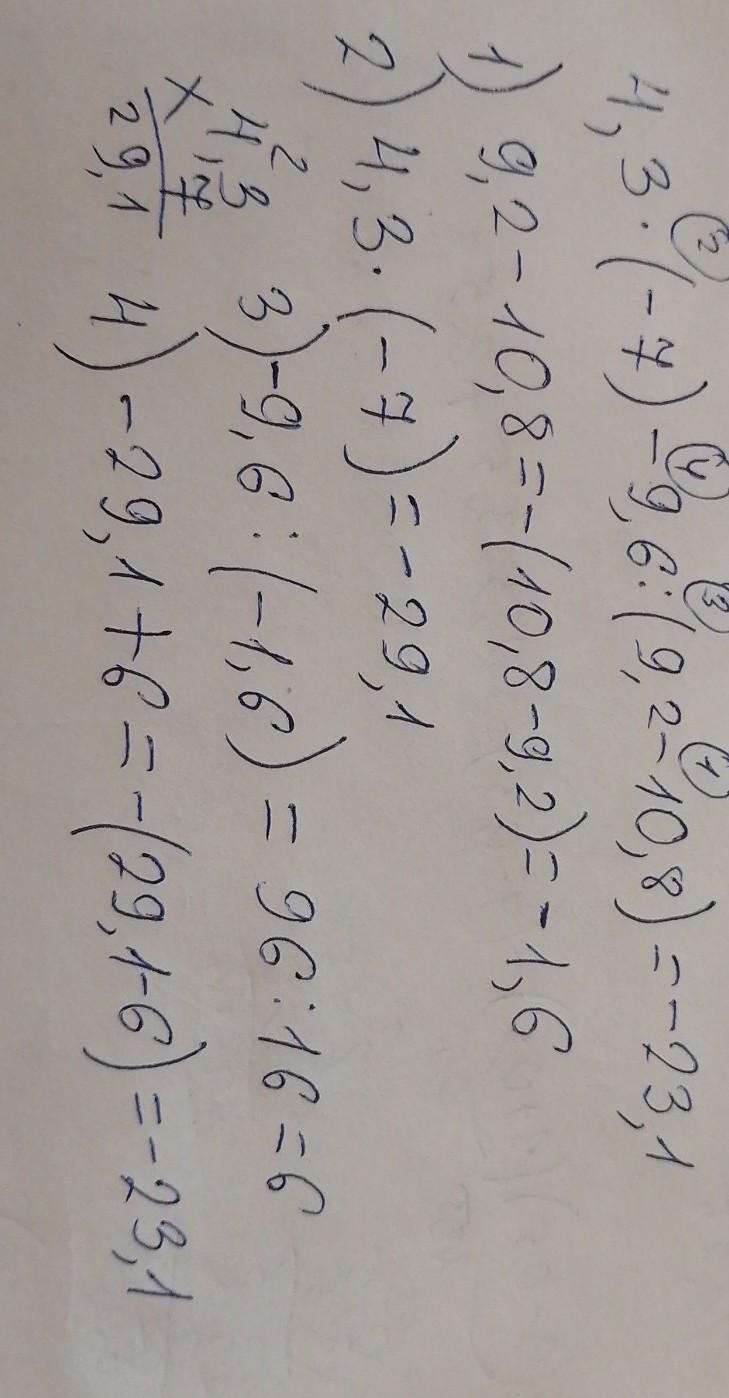 ② ④ ③ ①
4,3·(-7)-9,6:(9,2-10,8)=-23,1
1) 9,2-10,8=-(10,8-9,2)=-1,6
2) 4,3·(-7)=-29,1
2
×4,3
7
29,1
3) -9,6:(-1,6)=96:16=6
4) -29,1+6=-(29,1-6)=-23,1